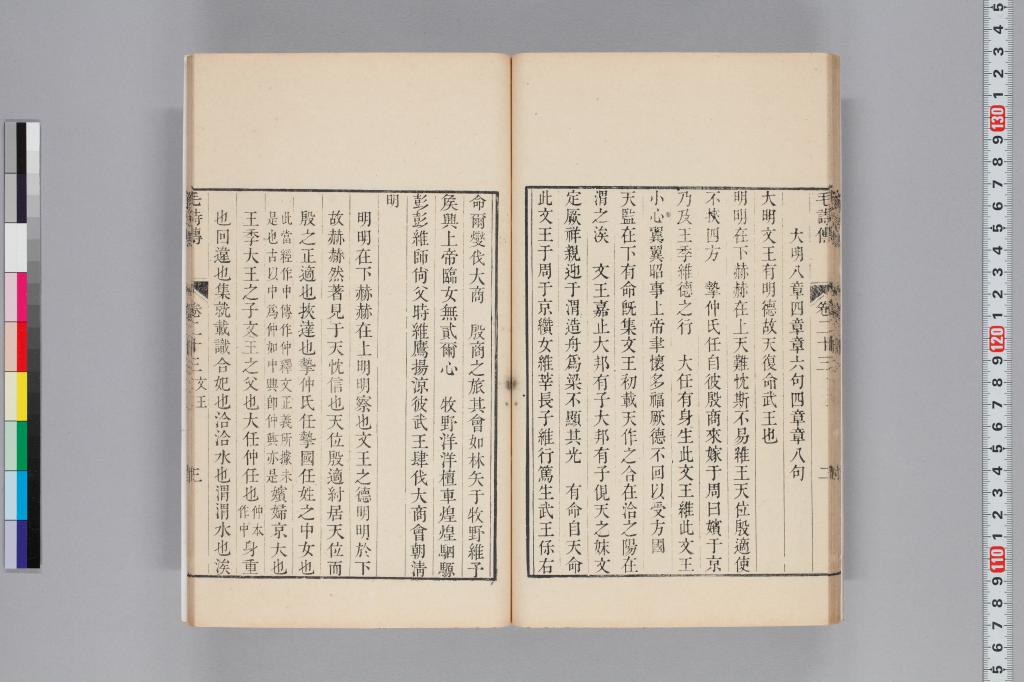 毛詩傳 卷二十三 二
大明八章四章章六句四章章八句
大明文王有明德故天復命武王也
明明在下赫赫在上天難忱斯不易維王天位殷適使
不挾四方 摯仲氏任自彼殷商來嫁于周曰嬪于京
乃及王季維德之行 大任有身生此文王維此文王
小心翼翼昭事上帝聿懷多福厥德不回以受方國
天監在下有命旣集文王初載天作之合在洽之陽在
渭之涘 文王嘉止大邦有子大邦有子俔天之妹文
定厥祥親迎于渭造舟爲梁不顯其光 有命自天命
此文王于周于京纘女維莘長子維行篤生武王保右
命爾燮伐大商 殷商之旅其會如林矢于牧野維予
矦興上帝臨女無貳爾心 牧野洋洋檀車煌煌駟騵
彭彭維師尙父時維鷹揚涼彼武王肆伐大商會朝淸
明
明明在下赫赫在上明明察也文王之德明明於下
故赫赫然著見于天忱信也天位殷適紂居天位而
殷之正適也挾達也摯仲氏任摯國任姓之中女也
此當經作中傳作仲釋文正義所據未
是也古以中爲仲如中興卽仲興亦是
嬪婦京大也
王季大王之子文王之父也大任仲任也
仲本
作中
身重
也回違也集就載識合妃也洽洽水也渭渭水也涘
毛詩傳 卷二十三 文王 三